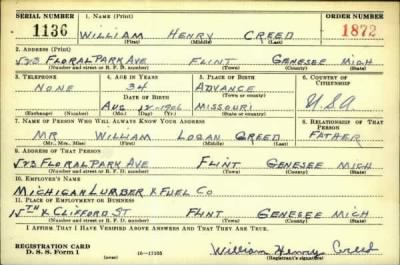 SERIAL NUMBER 1. NAME (Print) ORDER NUMBER
1136 WILLIAM HENRY CREED 1872
(First) (Middle) (Last)
2. ADDRESS (Print)
523 FLORAL PARK AVE FLINT GENESEE MICH
(Number and street or R. F. D. number) (Town) (County) (State)
3. TELEPHONE 4. AGE IN YEARS 5. PLACE OF BIRTH 6. COUNTRY OF CITIZENSHIP
NONE 34 ADVANCE
DATE OF BIRTH (Town or county)
AUG 12 1906 MISSOURI USA
(Exchange) (Number) (Mo.) (Day) (Yr.) (State or country)
7. NAME OF PERSON WHO WILL ALWAYS KNOW YOUR ADDRESS 8. RELATIONSHIP OF THAT PERSON
MR WILLIAM LOGAN CREED FATHER
(Mr., Mrs., Miss) (First) (Middle) (Last)
9. ADDRESS OF THAT PERSON
523 FLORAL PARK AVE FLINT GENESEE MICH
(Number and street or R. F. D. number) (Town) (County) (State)
10. EMPLOYER'S NAME
MICHIGAN LUMBER & FUEL CO
11. PLACE OF EMPLOYMENT OR BUSINESS
15TH & CLIFFORD ST FLINT GENESEE MICH
(Number and street or R. F. D. number) (Town) (County) (State)
I AFFIRM THAT I HAVE VERIFIED ABOVE ANSWERS AND THAT THEY ARE TRUE.
REGISTRATION CARD
D. S. S. Form 1 (over) 16-17105 William Henry Creed
(Registrant's signature)